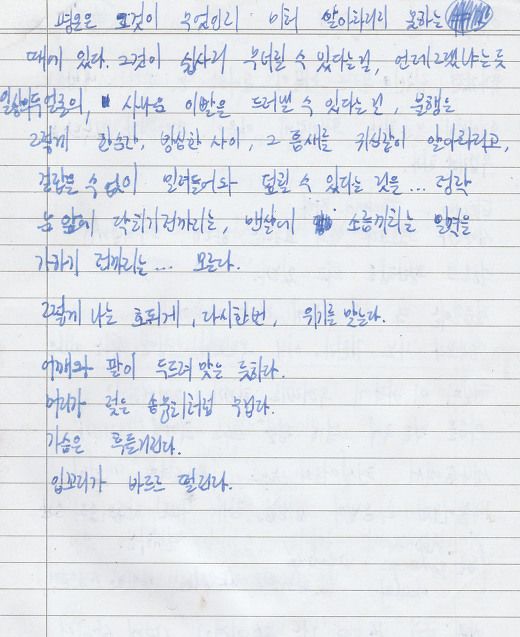 평온은 그것이 무엇인지 미처 알아차리지 못하는
때에 있다. 그것이 쉽사리 무너질 수 있다는걸, 언제 그랬냐는 듯
일상의 얼굴의, 사나운 이빨을 드러낼 수 있다는 걸, 불행은
그렇게 한순간, 방심한 사이, 그 틈새를 귀신같이 알아차리고,
걷잡을 수 없이 밀려들어와 덮칠 수 있다는 것을... 정작
눈 앞에 닥치기전까지는, 맨살에 소름끼치는 일격을
가하기 전까지는... 모른다.
그렇게 나는 호되게, 다시한번, 위기를 맞는다.
어깨와 팔이 두드려 맞은 듯하다.
머리가 젖은 솜뭉치처럼 무겁다.
가슴은 흐느적거린다.
입꼬리가 바르르 떨린다.